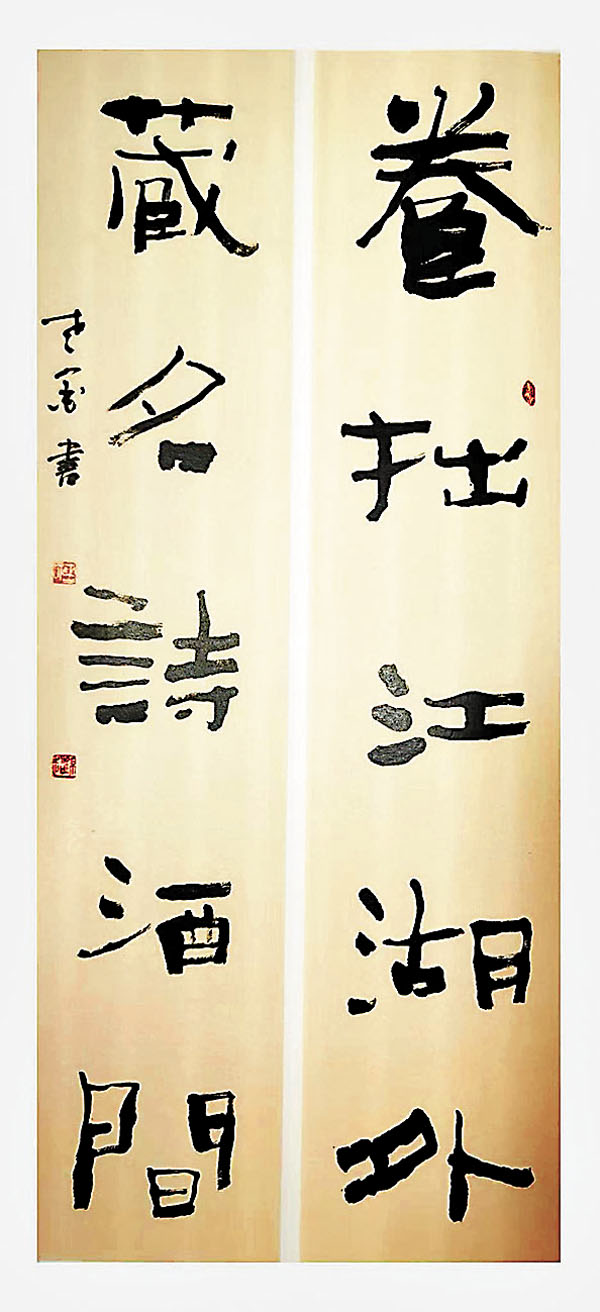 養拙江湖外
藏名詩酒間
書